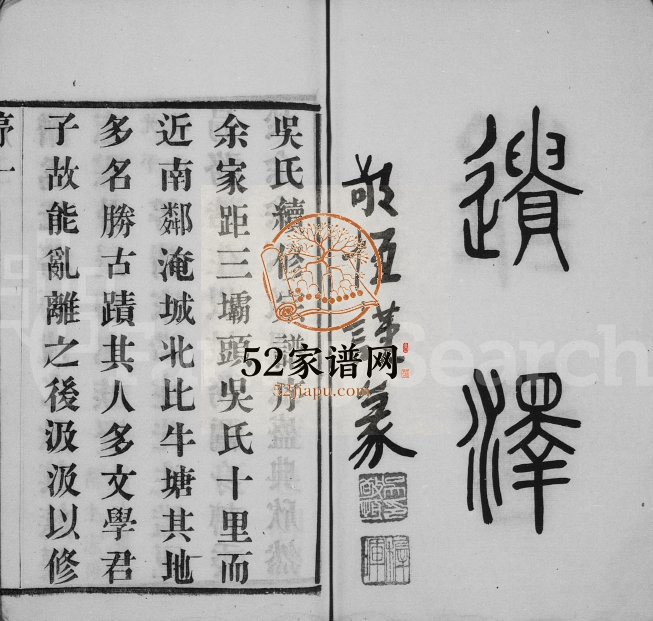 遺澤
敬恆謹篆
吳氏續修宗譜序
余家距三壩頭吳氏十里而
近南鄰淹城北比牛塘其地
多名勝古蹟其人多文學君
子故能亂離之後汲汲以修
序一
52家谱网
52jiapu.com
Search